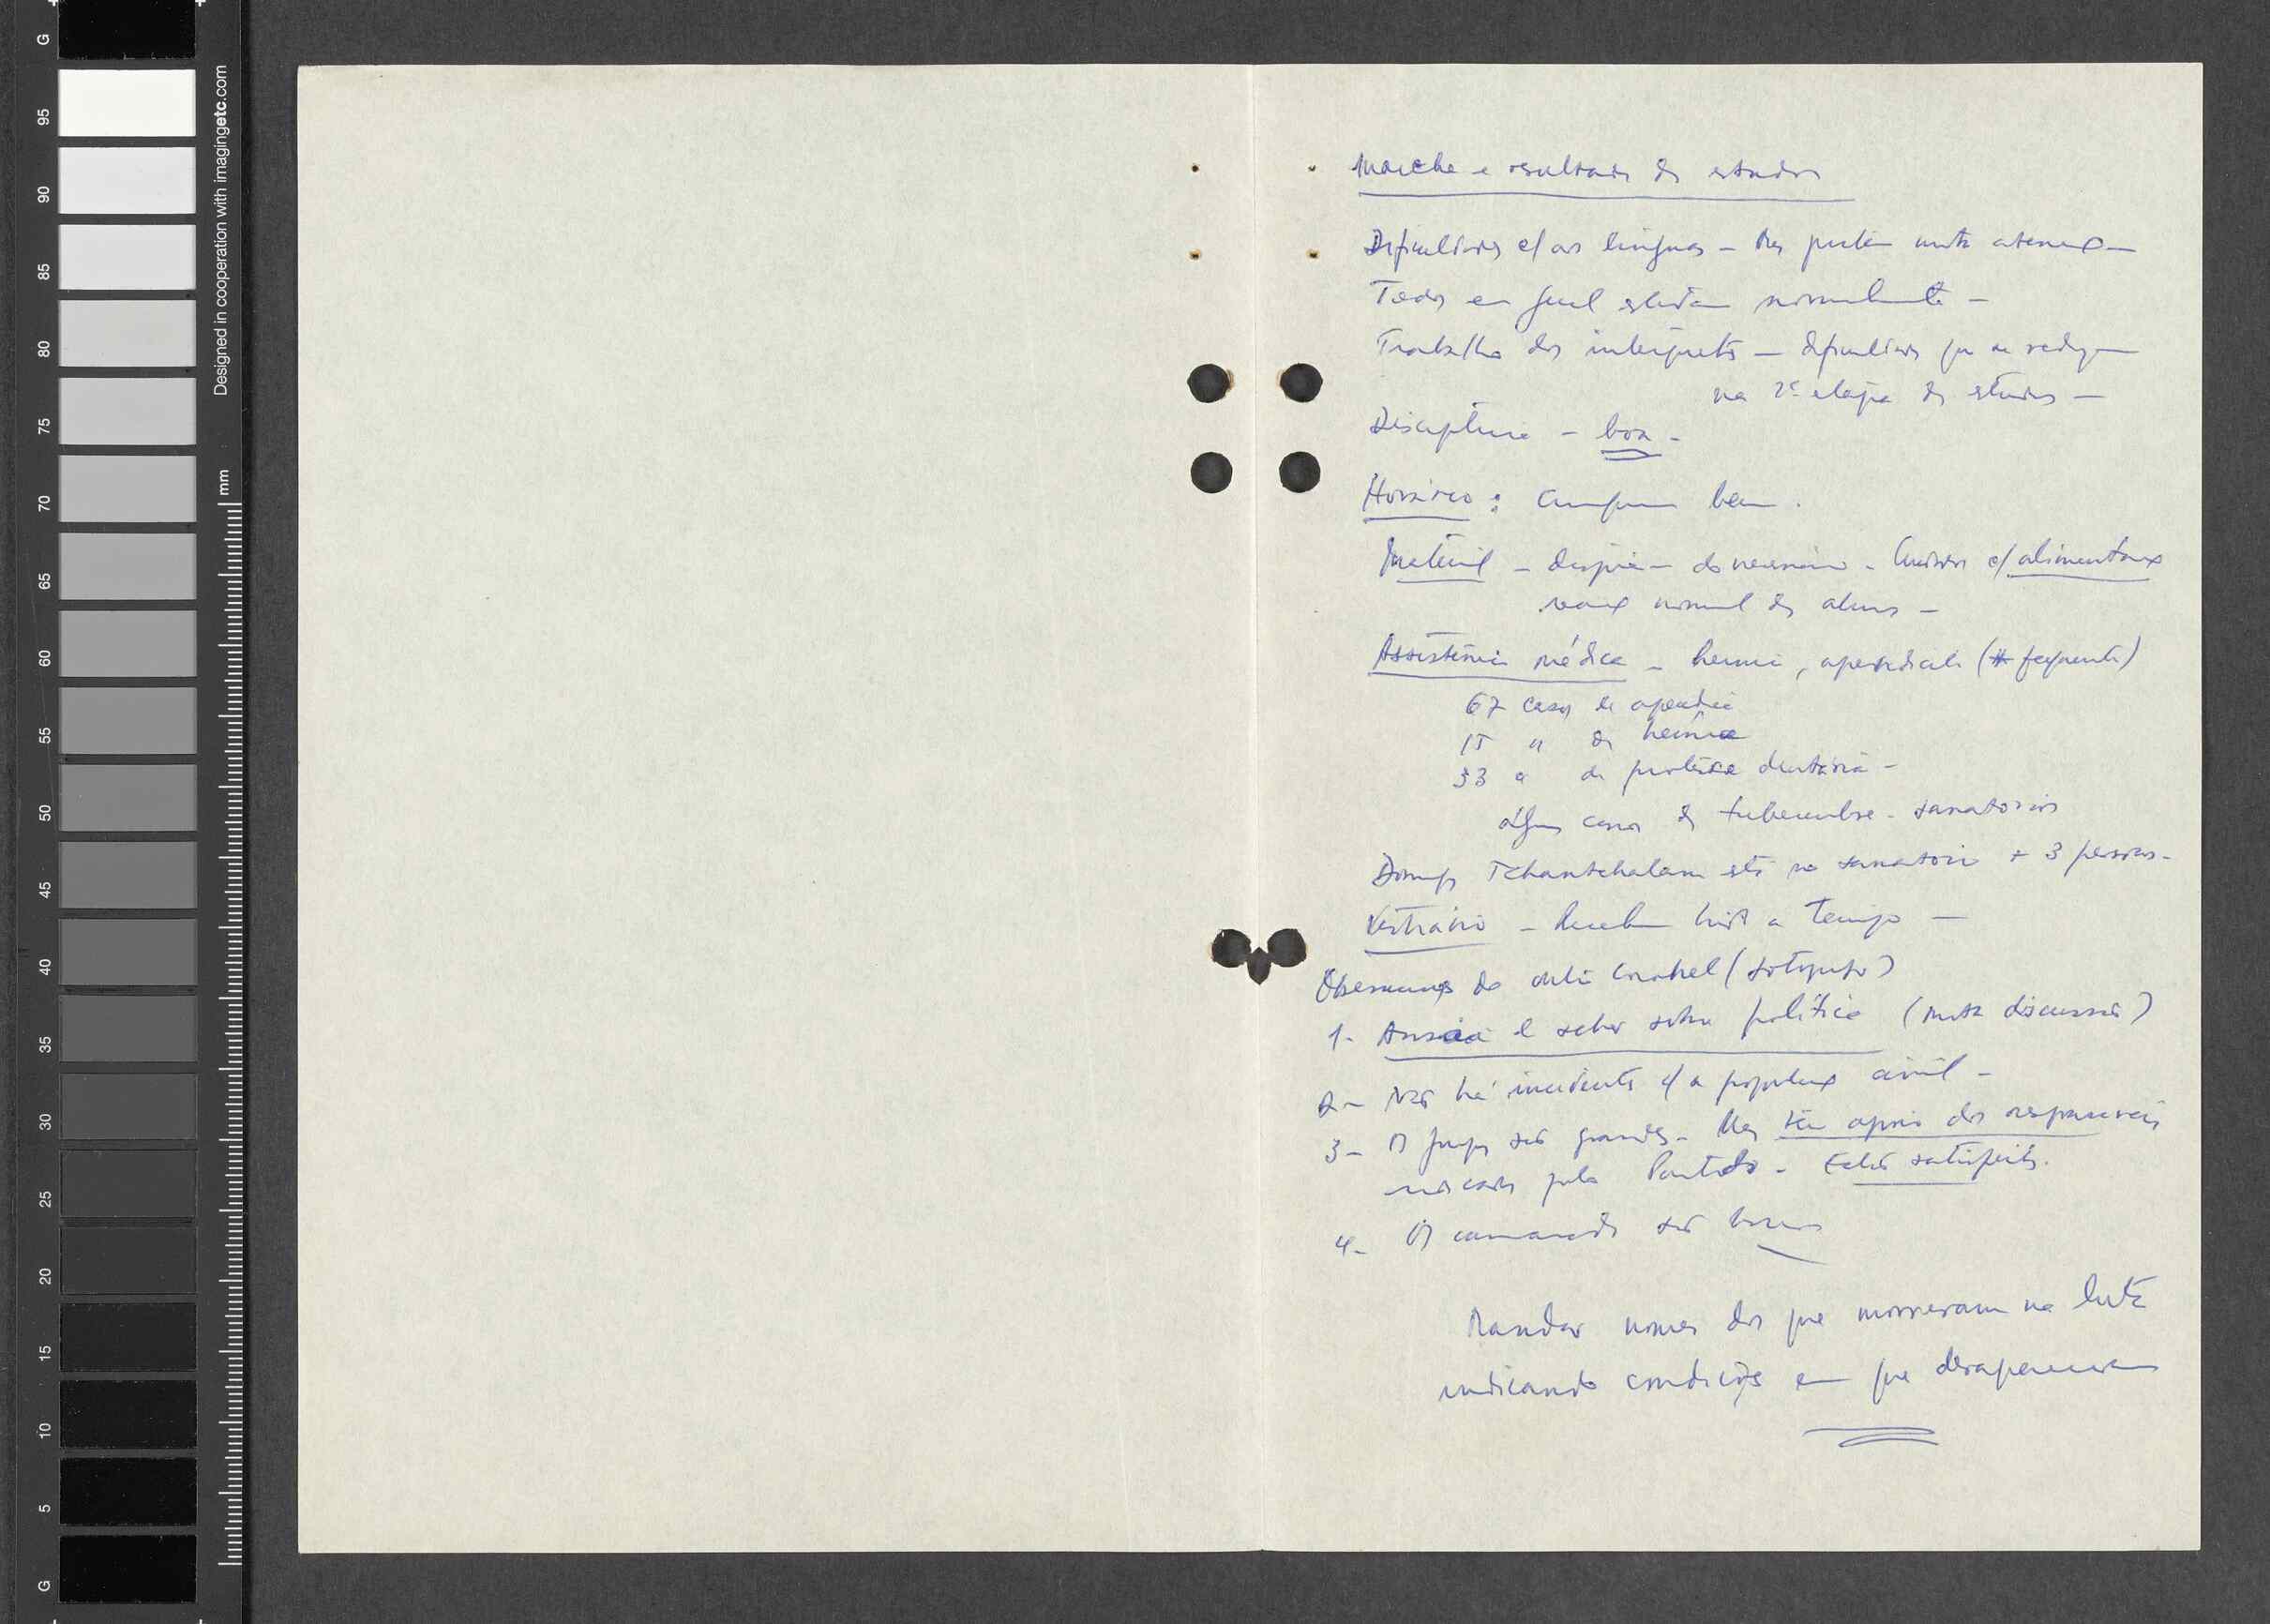 Marcha e resultados dos estudos
Dificuldades c/ as línguas – Mas prestam muita atenção –
Todos em geral estudam normalmente –
Trabalho dos intérpretes – dificuldades que se reduzem
na 2ª etapa dos estudos –
Disciplina – boa –
Horário: cumprem bem.
Material – do necessário – Cuidados c/ alimentação
normal dos alunos –
Assistência médica – hernia, apendicite (# frequente)
67 casos de apendicite
15 " de hernia
33 " de protese dentária –
alguns casos de tuberculose – sanatórios
Domingos Tchantchalam está no sanatório + 3 pessoas –
Vestuário – Recebem tudo a tempo –
Observações do Coronel
1- Ansia de saber sobre política (muita discussão)
2- Não há incidentes c/ a população civil –
3- Os grupos são grandes – Mas têm apoio dos responsáveis
marcados pelo Partido – Estão satisfeitos.
4- Os camaradas são bons
Mandar nomes dos que morreram na luta
indicando condições em que desapareceram
G
95
90
85
80
75
70
65
60
55
50
45
40
35
30
25
20
15
10
5
G
Designed in cooperation with imagingetc.com
mm